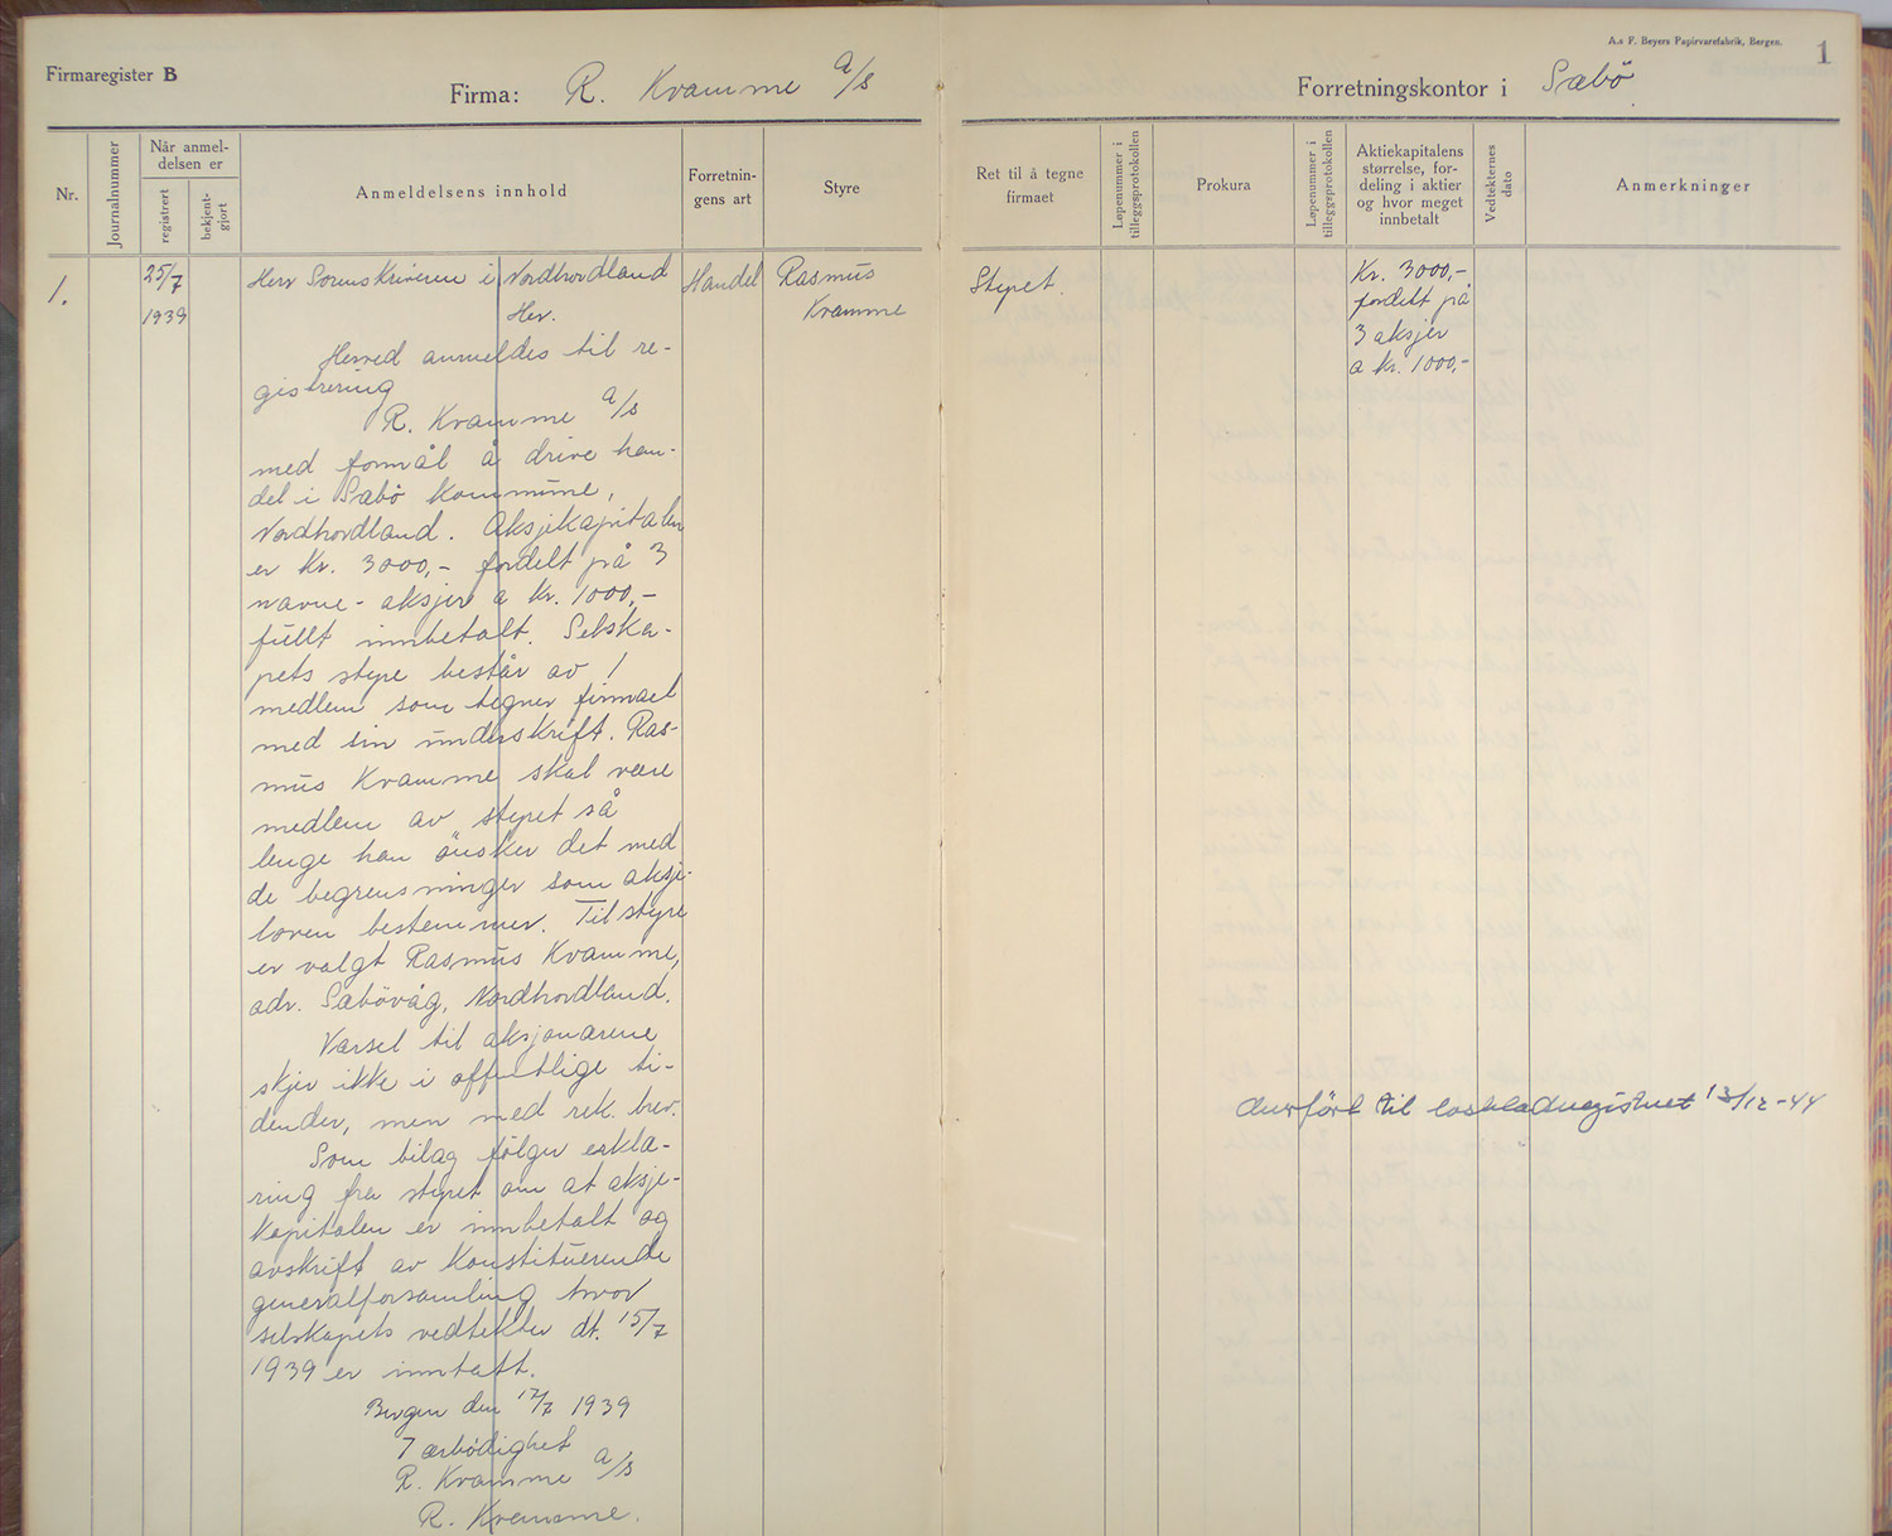 A.s F. Beyers Papirvarefabrik, Bergen.
1
Firmaregister B
Firma: R. Kvamme a/s
Forretningskontor i Sæbö
Nr.
Journalnummer
Når anmel-
delsen er
registrert
bekjent-
gjort
Anmeldelsens innhold
Forretnin-
gens art
Styre
Ret til å tegne
firmaet
Løpenummer i
tilleggsprotokollen
Prokura
Løpenummer i
tilleggsprotokollen
Aktiekapitalens
størrelse, for-
deling i aktier
og hvor meget
innbetalt
Vedtekternes
dato
Anmerkninger
1.
25/7
1939
Herr Sorenskriveren i Nordhordland
Her.
Herved anmeldes til re-
gistrering
R. Kvamme a/s
med formål å drive han-
del i Sæbö kommune,
Nordhordland. Aksjekapitalen
er kr. 3000,- fordelt på 3
navne-aksjer a kr. 1000,-
fullt innbetalt. Selska-
pets styre består av 1
medlem som tegner firmaet
med sin underskrift. Ras-
mus Kvamme skal være
medlem av styret så
lenge han önsker det med
de begrensninger som aksje-
loven bestemmer. Til styre
er valgt Rasmus Kvamme,
adr. Sæbövåg, Nordhordland.
Varsel til aksjonærene
skjer ikke i offentlige ti-
dender, men med rek. brev.
Som bilag fölger erklæ-
ring fra styret om at aksje-
kapitalen er innbetalt og
avskrift av konstituerende
generalforsamling hvor
selskapets vedtekter dt. 15/7
1939 er inntatt.
Bergen den 17/7 1939
Ærbödighet
R. Kvamme a/s
R. Kvamme.
Handel
Rasmus
Kvamme
Styret.
Kr. 3000,-
fordelt på
3 aksjer
a kr. 1000,-
Överfört til lösbladregistret 13/12-44